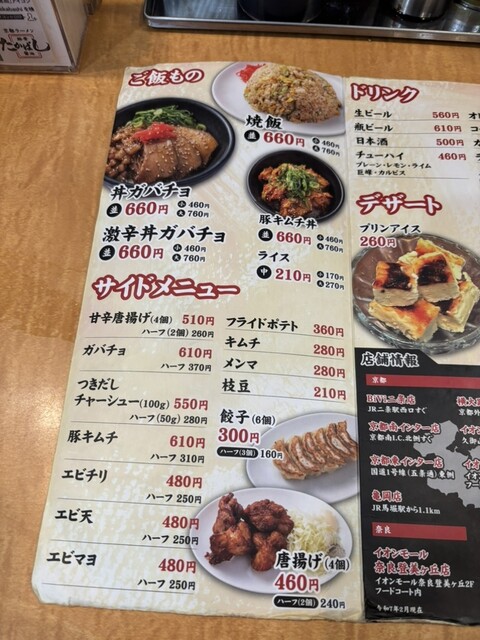 たかばし
ご飯もの
焼飯
並 660円 小 460円
大 760円
丼ガバチョ
並 660円 小 460円
大 760円
激辛丼ガバチョ
並 660円 小 460円
大 760円
豚キムチ丼
並 660円 小 460円
大 760円
ライス
中 210円 小 170円
大 270円
サイドメニュー
甘辛唐揚げ(4個) 510円
ハーフ(2個) 260円
ガバチョ 610円
ハーフ 370円
つきだし
チャーシュー(100g) 550円
ハーフ(50g) 280円
豚キムチ 610円
ハーフ 310円
エビチリ 480円
ハーフ 250円
エビ天 480円
ハーフ 250円
エビマヨ 480円
ハーフ 250円
フライドポテト 360円
キムチ 280円
メンマ 280円
枝豆 210円
餃子(6個)
300円
ハーフ(3個) 160円
唐揚げ(4個)
460円
ハーフ(2個) 240円
ドリンク
生ビール 560円
瓶ビール 610円
日本酒 500円
チューハイ 460円
プレーン・レモン・ライム
巨峰・カルピス
デザート
プリンアイス
260円
店舗情報
京都
BiVi二条店
JR二条駅西口すぐ
京都南インター店
京都南I.C.北側すぐ
京都東インター店
国道1号線(五条通)東側
亀岡店
JR馬堀駅から1.1km
奈良
イオンモール
奈良登美ヶ丘店
イオンモール奈良登美ヶ丘2F
フードコート内
令和7年2月現在